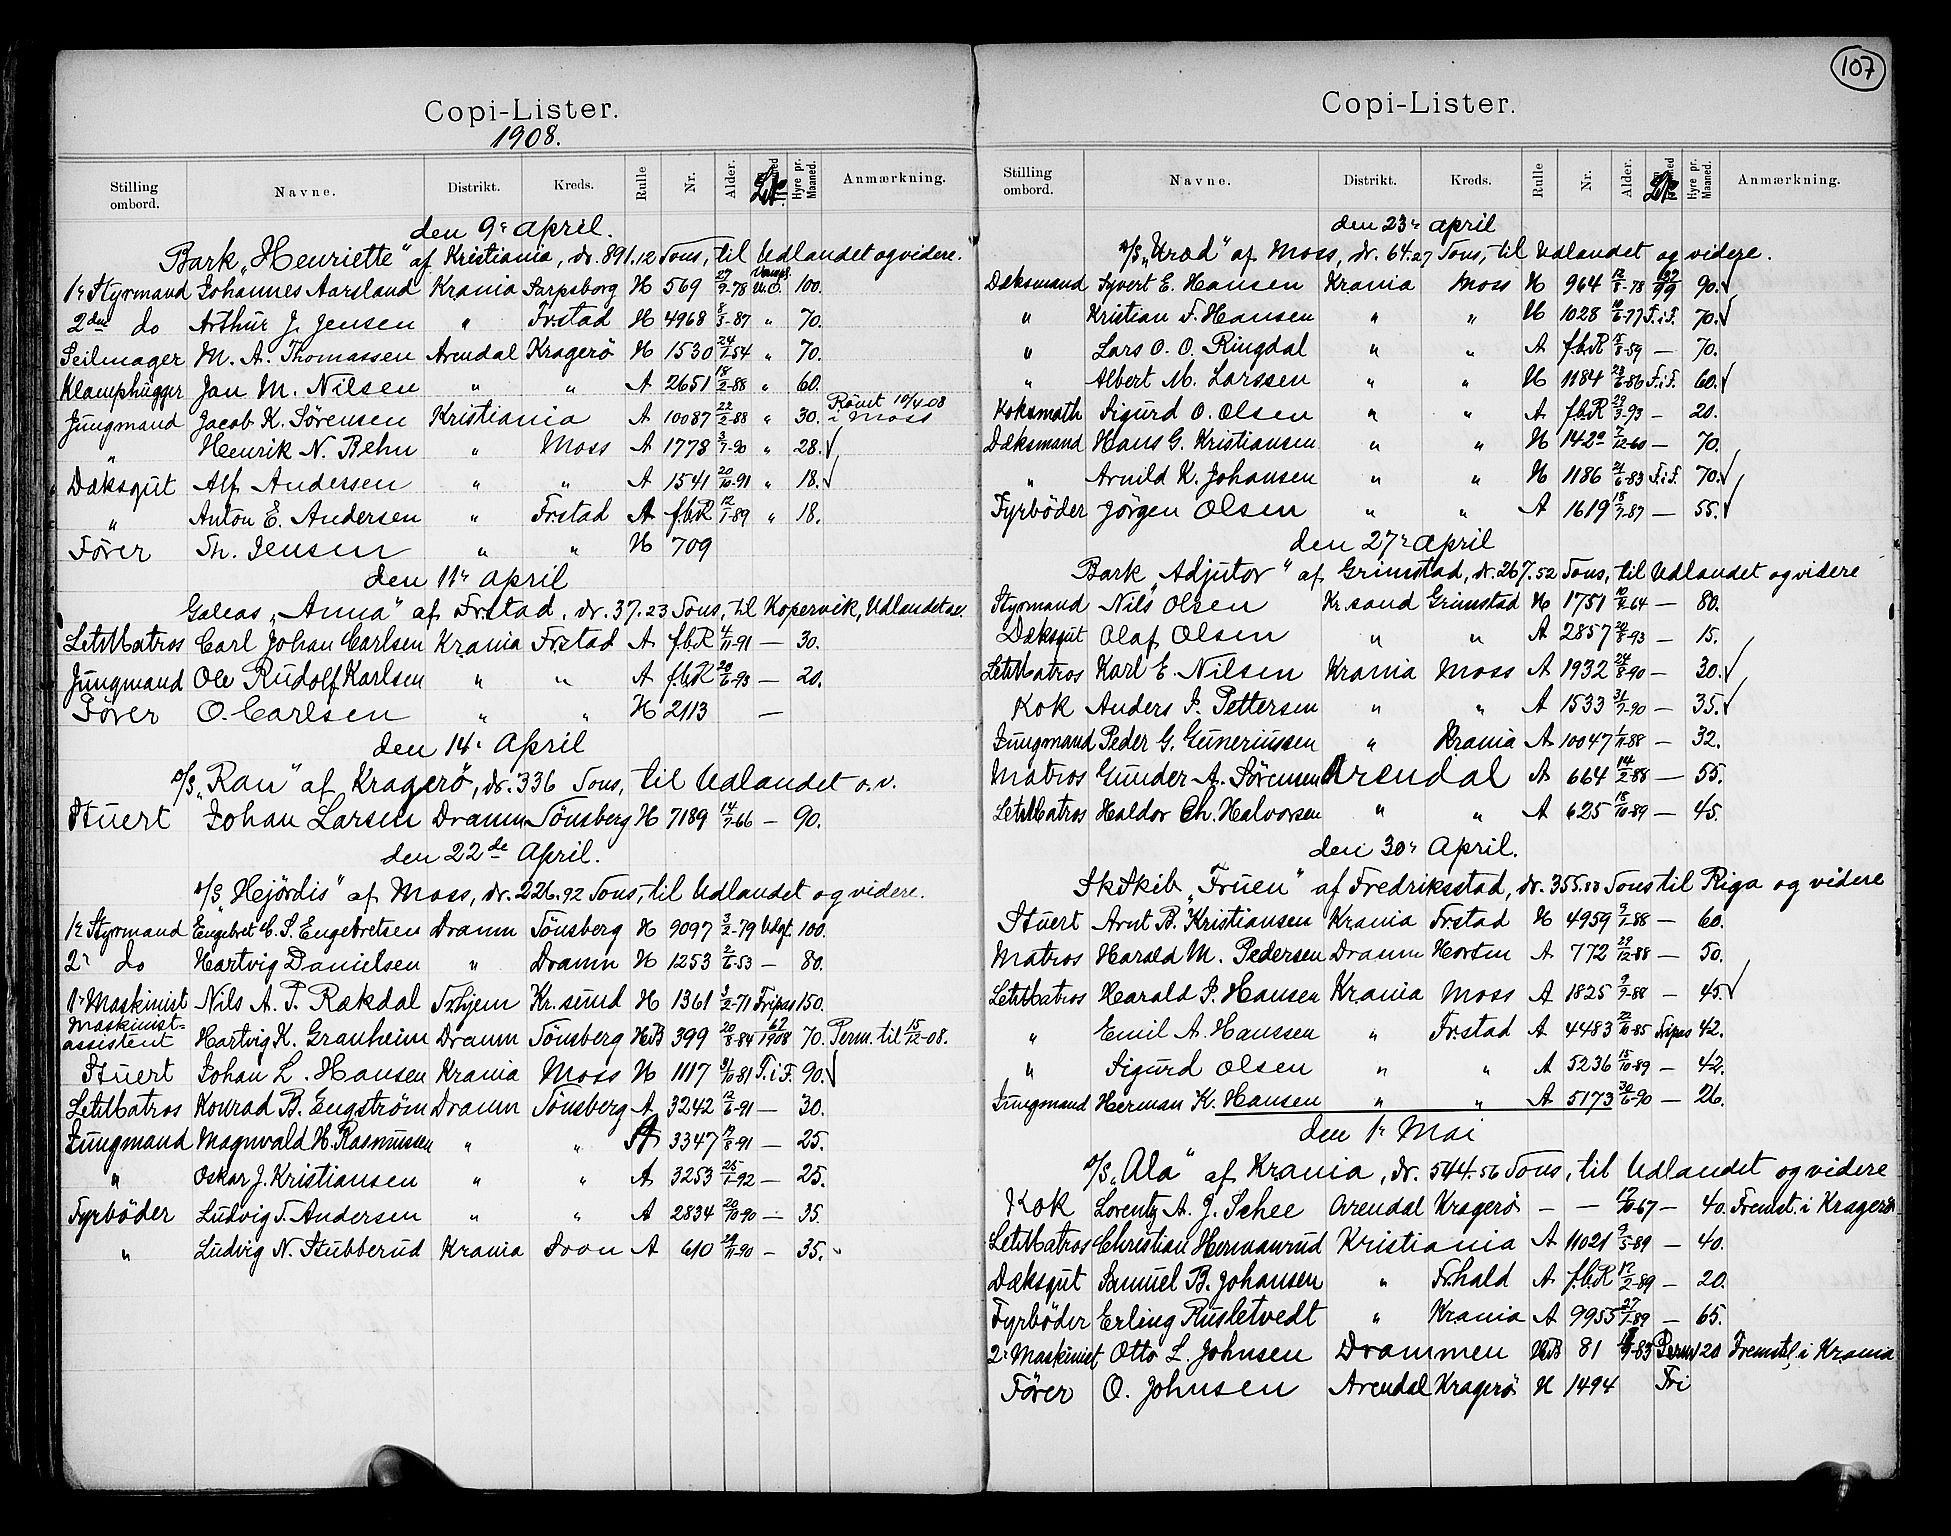 Copi-Lister.
1908.
Stilling ombord. Navne. Distrikt. Kreds. Rulle Nr. Alder. Hyre pr. Maaned. Anmærkning.
den 9' April.
Bark „Henriette" af Kristiania, dr. 891.12 Tons, til Udlandet og videre.
1' Styrmand Johannes Aarsland Krania Sarpsborg H 569 27/9-78 100.
2den do Arthur J. Jensen " Frstad H 4968 8/3-87 " 70.
Seilmager M. A. Thomassen Arendal Kragerö H 1530 24/7-54 " 70.
Klamphugger Jan M. Nilsen " " A 2651 18/2-88 " 60.
Jungmand Jacob K. Sørensen Kristiania A 10087 22/2-88 " 30. Römt 10/4 08 i Moss
" Henrik N. Rehn " Moss A 1778 3/7-90 " 28. ✓
Dæksgut Alf Andessen " " A 1541 20/10-91 " 18. ✓
" Anton E. Andersen " Frstad A f.b.R 12/1-89 " 18.
Fører Th. Jensen " " H 709
den 11' April
Galeas „Anna" af Frstad, dr. 37.23 Tons, til Kopervik, Udlandet
LetMatros Carl Johan Carlsen Krania Frstad A f.b.R 4/11-91 — 30.
Jungmand Ole Rudolf Karlsen " " A f.b.R 20/6-93 — 20.
Fører O. Carlsen " " H 2113 —
den 14' April
D/S „Ran" af Kragerö, dr. 336 Tons, til Udlandet o.v.
Stuert Johan Larsen Dramn Tönsberg H 7189 14/7-66 — 90.
den 22de April.
D/S „Hejördis" af Moss, dr. 226.92 Tons, til Udlandet og videre.
1' Styrmand Engebret C. S. Engebretsen Dramn Tönsberg H 9097 3/2-79 Udgt. 100.
2' do Hartvig Danielsen " Dramn H 1253 2/6-53 — 80.
1' Maskinist Nils A. P. Rækdal Trhjem Kr.sund H 1361 3/2-71 Fripas 150.
Maskinist-assistent Hartvig K. Granheim Dramn Tönsberg HB 399 20/8-84 67/1908 70. Perm. til 15/12-08.
Stuert Johan L. Hansen Krania Moss H 1117 31/10-81 F.i F. 90. ✓
LetMatros Konrad B. Engström Dramn Tönsberg A 3242 12/6-91 — 30.
Jungmand Magnvald H. Rasmussen " " A 3347 19/8-91 — 25.
" Oskar J. Kristiansen " " A 3253 25/1-92 — 25.
Fyrböder Ludvig T. Andersen " " A 2834 20/10-90 — 35.
" Ludvig N. Stubberud Krania Soon A 610 29/11-90 — 35.
107
Copi-Lister.
Stilling ombord. Navne. Distrikt. Kreds. Rulle Nr. Alder. Hyre pr. Maaned. Anmærkning.
den 23' April
D/S „Kræd" af Moss, dr. 64.27 Tons, til Udlandet og videre.
Dæksmand Syvert E. Hansen Krania Moss H 964 12/8-78 90. ✓
" Kristian F. Hansen " " H 1028 10/6-77 F.i F. 70. ✓
" Lars O. O. Ringdal " " A f.b.R 12/8-59 — 70.
" Albert M. Larssen " " H 1184 23/6-86 F.i F. 60. ✓
Koksmath Sigurd O. Olsen " " A f.b.R 29/3-93 — 20.
Dæksmand Hans G. Kristiansen " " H 1422 7/12-60 — 70.
" Arnild K. Johansen " " H 1186 21/6-83 F.i F. 70. ✓
Fyrböder Jörgen Olsen " " A 1619 18/7-87 — 55. ✓
den 27' April
Bark „Adjutor" af Grimstad, dr. 267.52 Tons, til Udlandet og videre
Styrmand Nils Olsen Kr.sand Grimstad H 1751 10/9-64 — 80.
Dæksgut Olaf Olsen " " A 2857 20/8-93 — 15.
LetMatros Karl E. Nilsen Krania Moss A 1932 24/8-90 — 30. ✓
Kok Anders J. Pettersen " " A 1533 31/7-90 — 35. ✓
Jungmand Peder G. Guneriussen " Krania A 10047 1/11-88 — 32.
Matros Gunder A. Sørensen Arendal A 664 14/2-88 — 55.
LetMatros Haldor Ch. Halvorsen " " A 625 18/10-89 — 45.
den 30' April.
SkSkib „Fruen" af Fredriksstad, dr. 355.88 Tons til Riga og videre
Stuert Arnt B. Kristiansen Krania Frstad H 4959 9/1-88 — 60.
Matros Harald M. Pedersen Dramn Horten A 772 29/12-88 — 50.
LetMatros Harald P. Hansen Krania Moss A 1825 9/7-88 — 45. ✓
" Emil A. Hanssen " Frstad A 4483 22/10-85 Fripas 42.
" Sigurd Olsen " " A 5236 15/10-89 — 42.
Jungmand Herman K. Hansen " " A 5173 30/6-90 — 26.
den 1' Mai
D/S „Ala" af Krania, dr. 544.56 Tons, til Udlandet og videre
Kok Lorentz A. J. Schee Arendal Kragerö — — 12/10-67 — 40. Fremst. i Kragerö
LetMatros Christian Hermanrud Kristiania A 11021 9/5-89 — 40.
Dæksgut Samuel B. Johansen " Frhald A f.b.R 17/2-89 — 20.
Fyrböder Erling Rusletvedt " Krania A 9955 27/7-89 — 65.
2' Maskinist Otto L. Johnsen Drammen HB 81 Perm 120 Fremst. i Krania
Fører O. Johnsen Arendal Kragerö H 1494 Fri